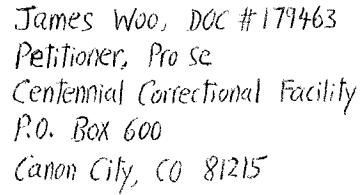 James Woo, DOC #179463
Petitioner, Pro se
Centennial Correctional Facility
P.O. Box 600
Canon City, CO 81215